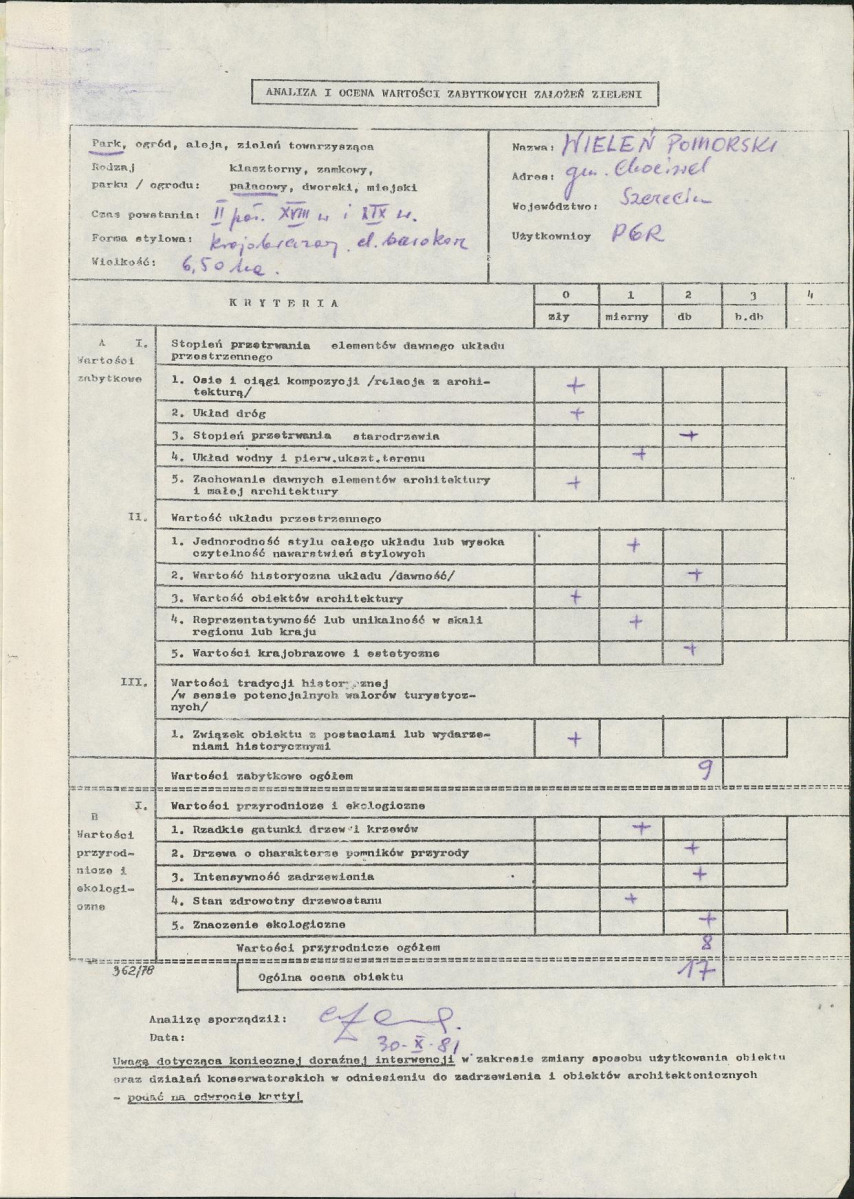 ANALIZA I OCENA WARTOŚCI ZABYTKOWYCH ZAŁOŻEŃ ZIELENI
Park, ogród, aleja, zieleń towarzysząca
Rodzaj klasztorny, zamkowy,
parku / ogrodu: pałacowy, dworski, miejski
Czas powstania: II poł. XVIII w i XIX w.
Forma stylowa: krajobrazowy, el. barokow
Wielkość: 6,50 ha.
Nazwa: WIELEŃ POMORSKI
Adres: gm. Chociwel
Województwo: Szczecin
Użytkownicy PGR
KRYTERIA 0 1 2 3 4
zły mierny db b.db
A I. Stopień przetrwania elementów dawnego układu
przestrzennego
Wartości
zabytkowe
1. Osie i ciągi kompozycji /relacja z archi-
tekturą/ +
2. Układ dróg +
3. Stopień przetrwania starodrzewia +
4. Układ wodny i pierw.ukszt.terenu +
5. Zachowanie dawnych elementów architektury
i małej architektury +
II. Wartość układu przestrzennego
1. Jednorodność stylu całego układu lub wysoka
czytelność nawarstwień stylowych +
2. Wartość historyczna układu /dawność/ +
3. Wartość obiektów architektury +
4. Reprezentatywność lub unikalność w skali
regionu lub kraju +
5. Wartości krajobrazowe i estetyczne +
III. Wartości tradycji historycznej
/w sensie potencjalnych walorów turystycz-
nych/
1. Związek obiektu z postaciami lub wydarze-
niami historycznymi +
Wartości zabytkowe ogółem 9
B I. Wartości przyrodnicze i ekologiczne
Wartości
przyrod-
nicze i
ekologi-
czne
1. Rzadkie gatunki drzew i krzewów +
2. Drzewa o charakterze pomników przyrody +
3. Intensywność zadrzewienia +
4. Stan zdrowotny drzewostanu +
5. Znaczenie ekologiczne +
Wartości przyrodnicze ogółem 8
962/78
Ogólna ocena obiektu 17
Analizę sporządził:
Data: 30-X-81
Uwagę dotycząca koniecznej doraźnej interwencji w zakresie zmiany sposobu użytkowania obiektu
oraz działań konserwatorskich w odniesieniu do zadrzewienia i obiektów architektonicznych
- podać na odwrocie karty!